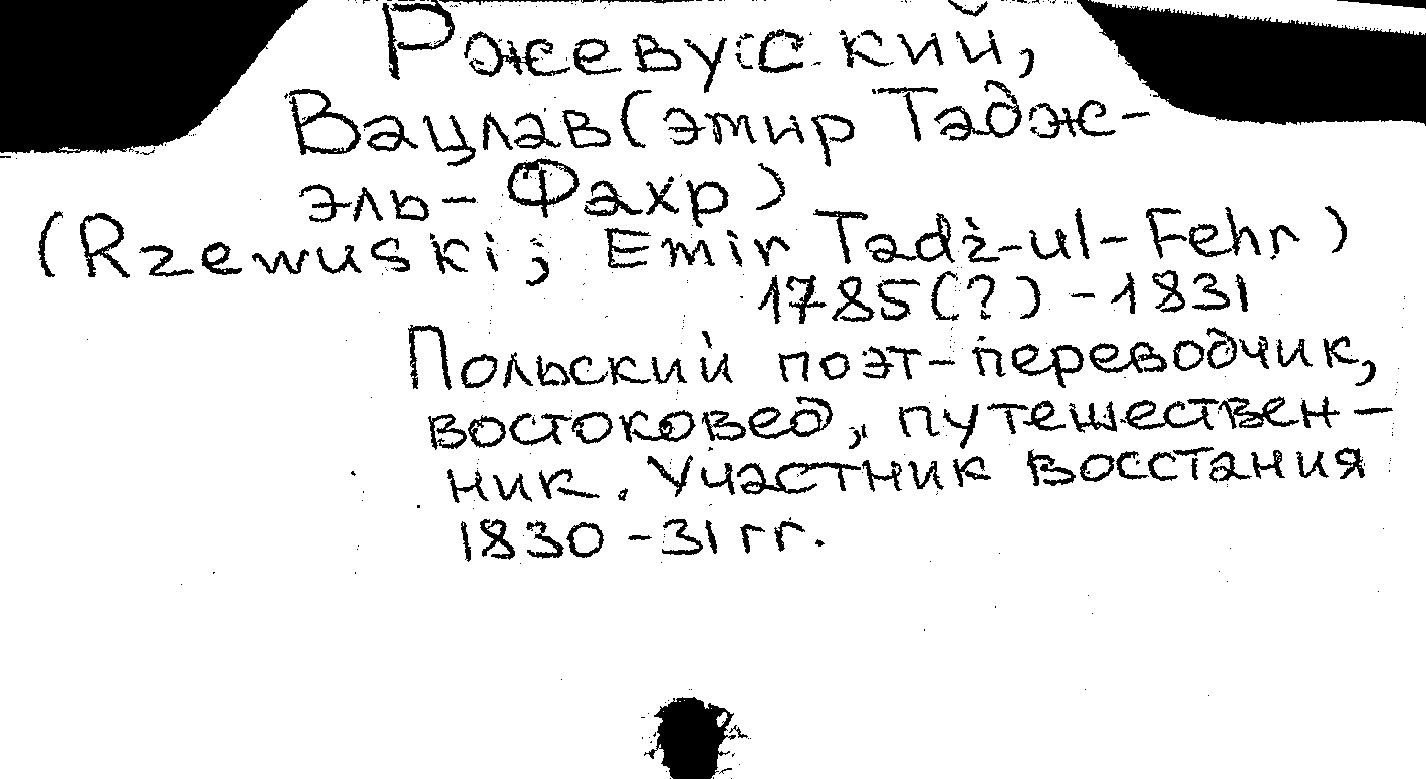 Ржевусский,
Вацлав (эмир Тадж-
эль-Фахр)
(Rzewuski; Emir Tadż-ul-Fehr)
1785(?) - 1831
Польский поэт-переводчик,
востоковед, путешествен-
ник. Участник восстания
1830-31 гг.